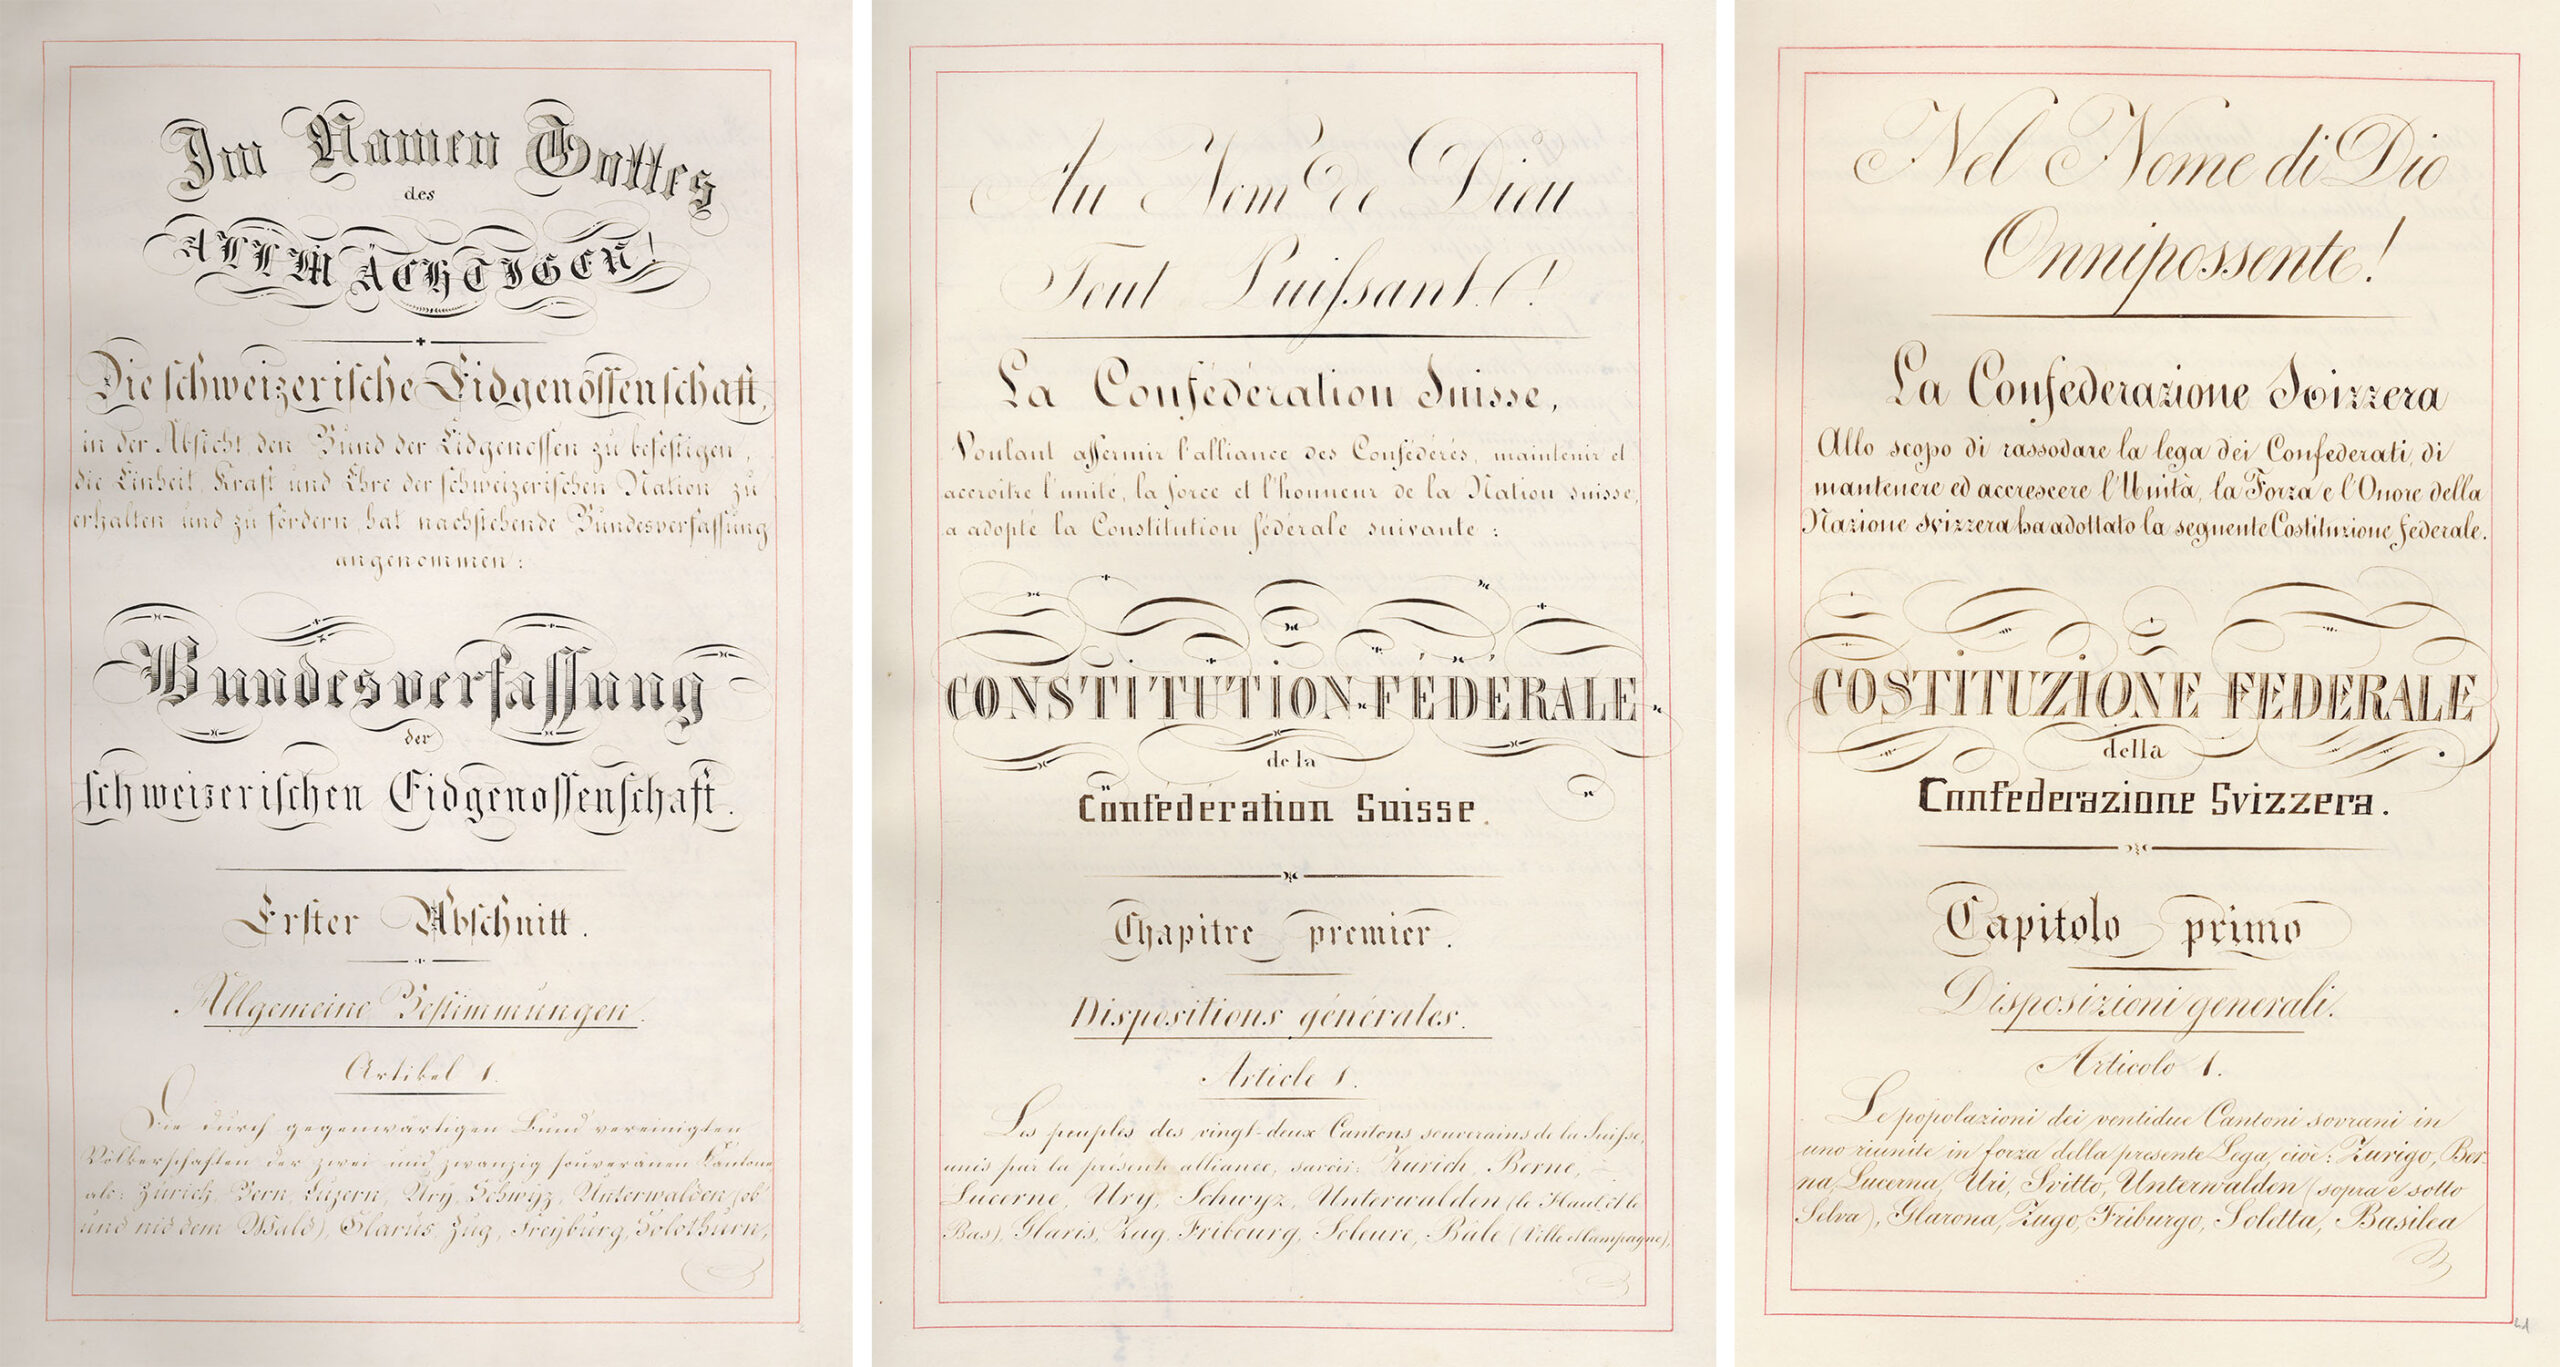 Im Namen Gottes
des
ALLMÄCHTIGEN!
Die schweizerische Eidgenossenschaft,
in der Absicht den Bund der Eidgenossen zu befestigen,
die Einheit, Kraft und Ehre der schweizerischen Nation zu
erhalten und zu fördern, hat nachstehende Bundesverfassung
angenommen:
Bundesverfassung
der
schweizerischen Eidgenossenschaft.
Erster Abschnitt.
Allgemeine Bestimmungen.
Artikel 1.
Die durch gegenwärtigen Bund vereinigten
Völkerschaften der zwei und zwanzig souveränen Kantone
als: Zürich, Bern, Luzern, Ury, Schwyz, Unterwalden (ob
und nid dem Wald), Glarus, Zug, Freyburg, Solothurn,
Au Nom de Dieu
Tout Puissant!
La Confédération Suisse,
Voulant affermir l'alliance des Confédérés, maintenir et
accroître l'unité, la force et l'honneur de la Nation suisse,
a adopté la Constitution fédérale suivante :
CONSTITUTION FÉDÉRALE
de la
Confédération Suisse.
Chapitre premier.
Dispositions générales.
Article 1.
Les peuples des vingt-deux Cantons souverains de la Suisse,
unis par la présente alliance, savoir: Zurich, Berne,
Lucerne, Ury, Schwyz, Unterwalden (le Haut et le
Bas), Glaris, Zug, Fribourg, Soleure, Bâle (Ville et Campagne),
Nel Nome di Dio
Onnipossente!
La Confederazione Svizzera
Allo scopo di rassodare la lega dei Confederati, di
mantenere ed accrescere l'Unità, la Forza e l'Onore della
Nazione Svizzera ha adottato la seguente Costituzione federale.
COSTITUZIONE FEDERALE
della
Confederazione Svizzera.
Capitolo primo
Disposizioni generali.
Articolo 1.
Le popolazioni dei ventidue Cantoni sovrani in
uno riunite in forza della presente Lega, cioè: Zurigo, Ber-
na, Lucerna, Uri, Svitto, Unterwalden (sopra e sotto
Selva), Glarona, Zugo, Friburgo, Soletta, Basilea